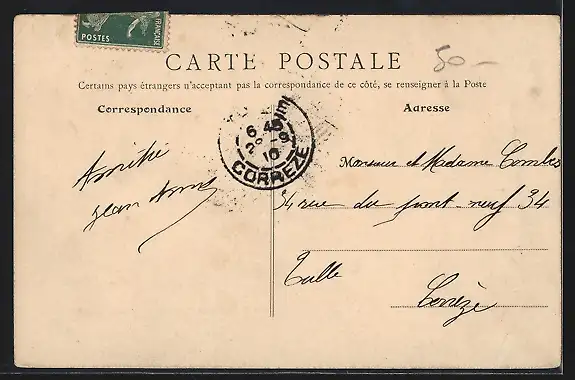 POSTES
FRANÇAISE
50-
CARTE POSTALE
Certains pays étrangers n'acceptant pas la correspondance de ce côté, se renseigner à la Poste
Correspondance
Adresse
6 45
28-9
10
CORREZE
Amitié
Jean
Monsieur et Madame Combes
34 rue du pont-neuf 34
Tulle
Corrèze